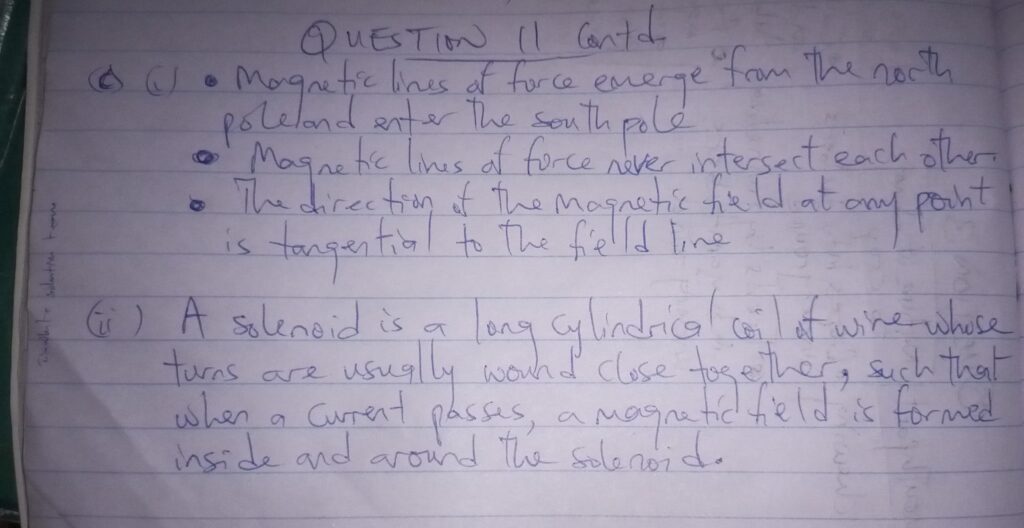 QUESTION 11 Contd
(c) (i) • Magnetic lines of force emerge from the north
pole and enter the south pole
• Magnetic lines of force never intersect each other.
• The direction of the magnetic field at any point
is tangential to the field line
(ii) A solenoid is a long cylindrical coil of wire whose
turns are usually wound close together, such that
when a current passes, a magnetic field is formed
inside and around the solenoid.